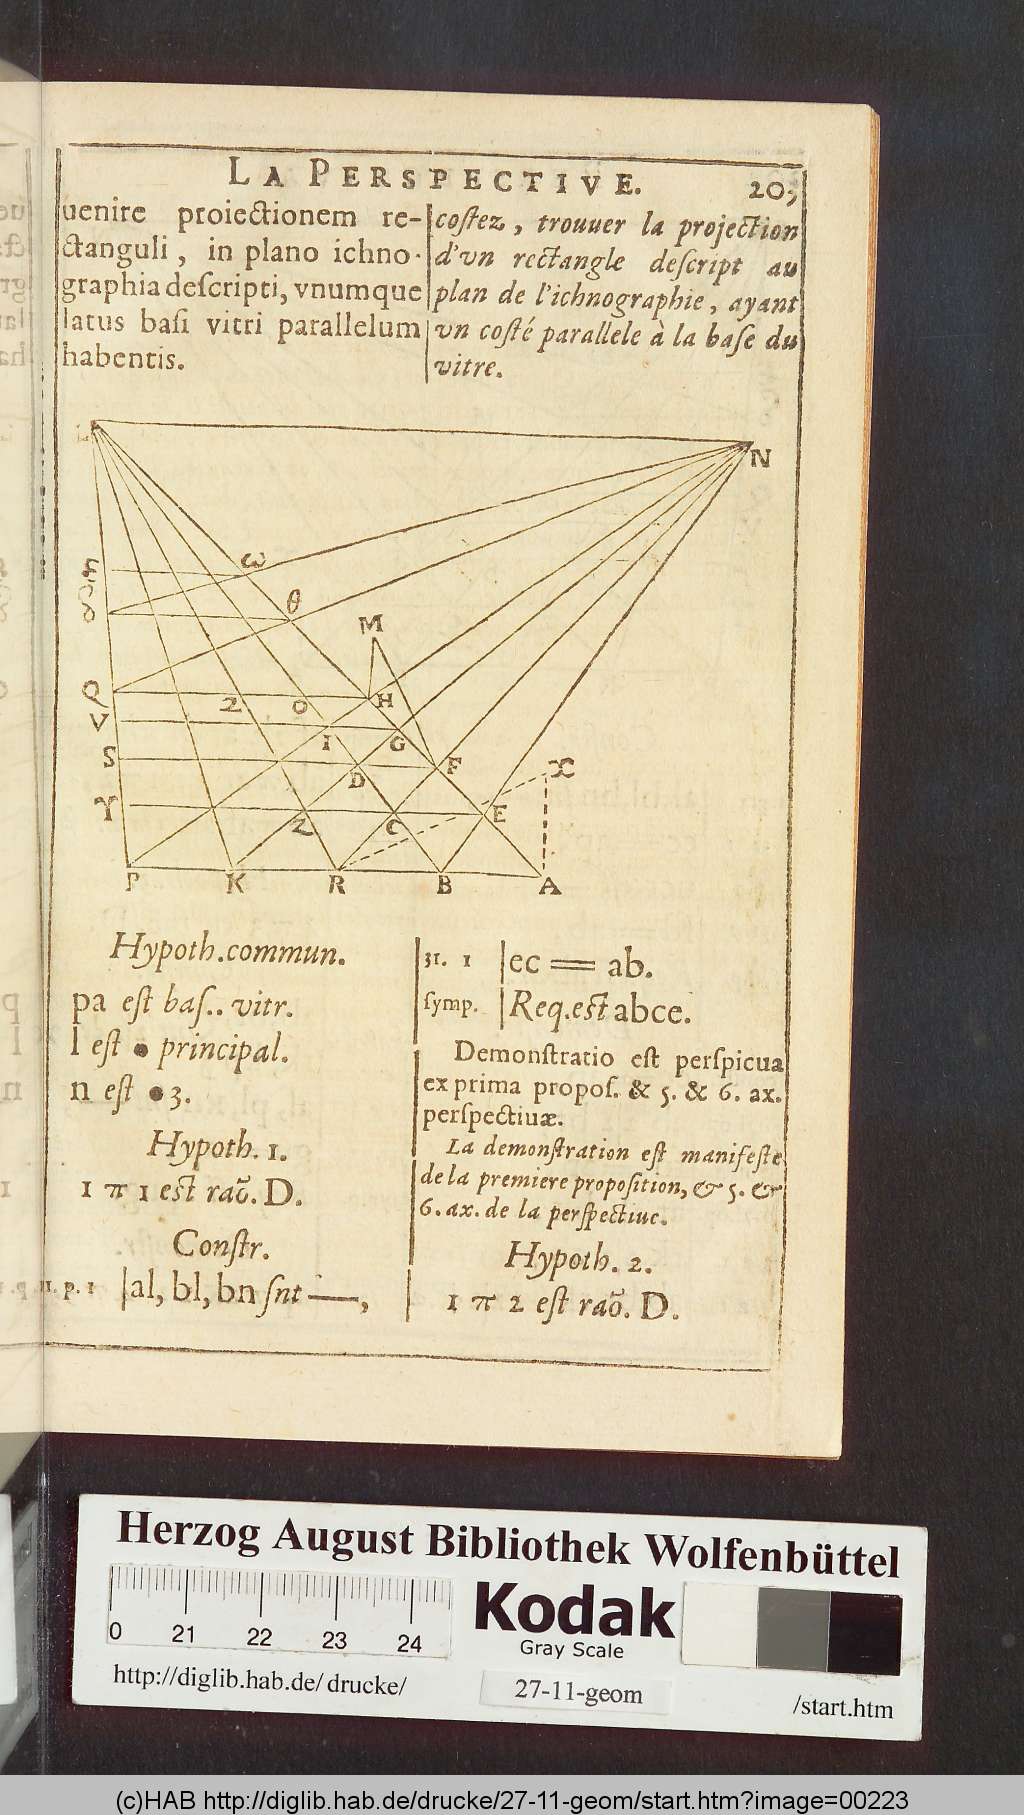 LA PERSPECTIVE. 205
uenire proiectionem re-
ctanguli, in plano ichno-
graphia descripti, vnumque
latus basi vitri parallelum
habentis.
costez, trouuer la projection
d'vn rectangle descript au
plan de l'ichnographie, ayant
vn costé parallele à la base du
vitre.
L
N
ω
θ
M
δ
Q 2 O H
V I G
S D F X
Y Z C E
P K R B A
Hypoth. commun.
pa est bas.. vitr.
l est ● principal.
n est ● 3.
Hypoth. 1.
1 π 1 est raõ. D.
Constr.
11. p. 1 | al, bl, bn snt —,
31. 1 | ec == ab.
symp. | Req. est abce.
Demonstratio est perspicua
ex prima propos. & 5. & 6. ax.
perspectiuæ.
La demonstration est manifeste
de la premiere proposition, & 5. &
6. ax. de la perspectiue.
Hypoth. 2.
1 π 2 est raõ. D.
Herzog August Bibliothek Wolfenbüttel
0 21 22 23 24
Kodak
Gray Scale
http://diglib.hab.de/ drucke/
27-11-geom
/start.htm
(c)HAB http://diglib.hab.de/drucke/27-11-geom/start.htm?image=00223